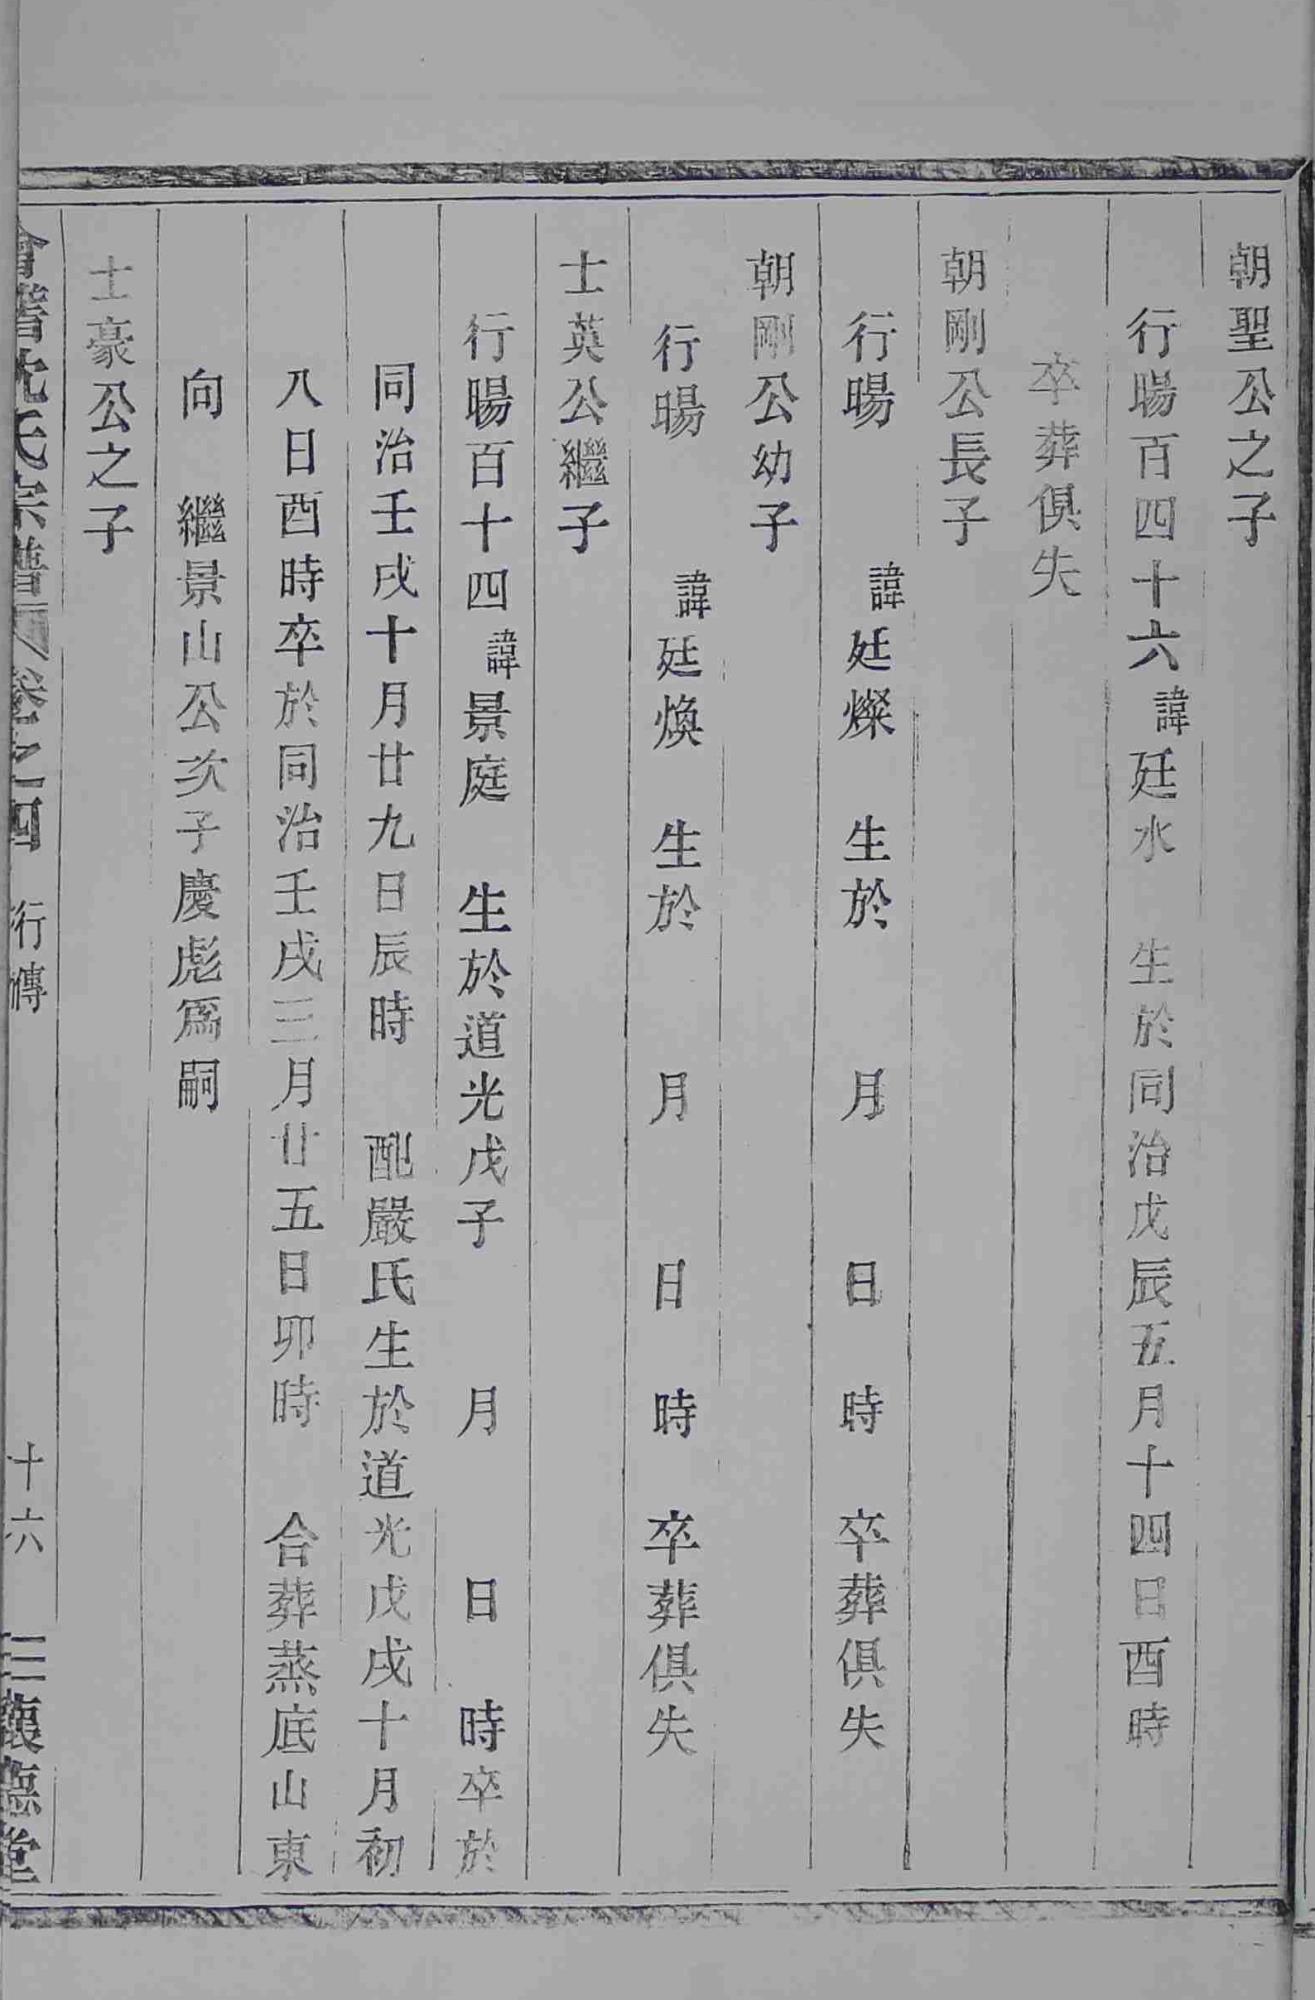 朝聖公之子
行暘百四十六諱廷水　生於同治戊辰五月十四日酉時
卒葬俱失
朝剛公長子
行暘　　諱廷燦　生於　　月　　日　時　卒葬俱失
朝剛公幼子
行暘　　諱廷煥　生於　　月　　日　時　卒葬俱失
士英公繼子
行暘百十四諱景庭　生於道光戊子　　月　　日　時卒於
同治壬戌十月廿九日辰時　配嚴氏生於道光戊戌十月初
八日酉時卒於同治壬戌三月廿五日卯時　合葬蒸底山東
向　繼景山公次子慶彪爲嗣
士豪公之子
會稽沈氏宗譜　卷之四　行傳　十六　三讓德堂